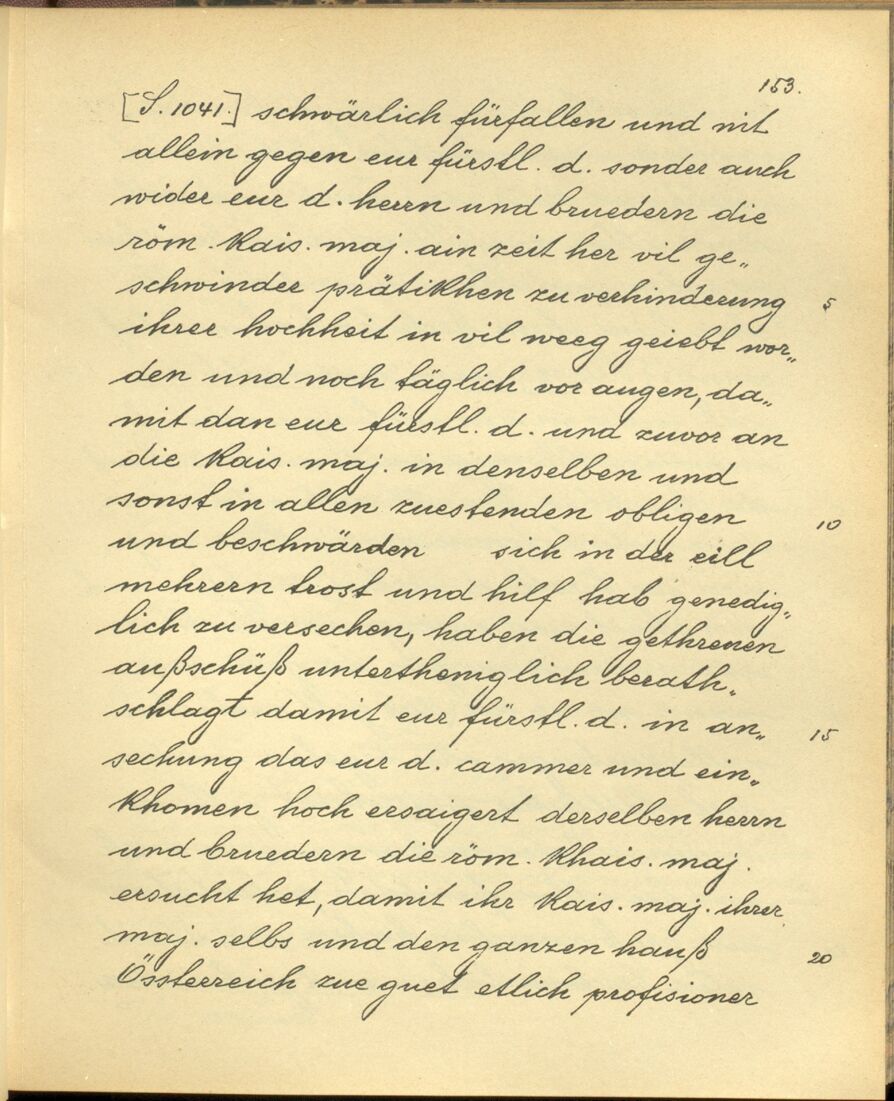 153.
[S. 1041.] schwärlich fürfallen und nit
allein gegen eur fürstl. d. sonder auch
wider eur d. herrn und bruedern die
röm. kais. maj. ain zeit her vil ge„
schwinder prätikhen zu verhinderung 5
ihrer hochheit in vil weeg geiebt wor„
den und noch täglich vor augen, da„
mit dan eur fürstl. d. und zuvor an
die kais. maj. in denselben und
sonst in allen zuestenden obligen 10
und beschwärden sich in der eill
mehrern trost und hilf hab genedig„
lich zu versechen, haben die gethreuen
außschüß untertheniglich berath„
schlagt damit eur fürstl. d. in an„ 15
sechung das eur d. cammer und ein„
khomen hoch ersaigert derselben herrn
und bruedern die röm. khais. maj.
ersucht het, damit ihr kais. maj. ihrer
maj. selbs und den ganzen hauß 20
Össterreich zue guet etlich profisioner